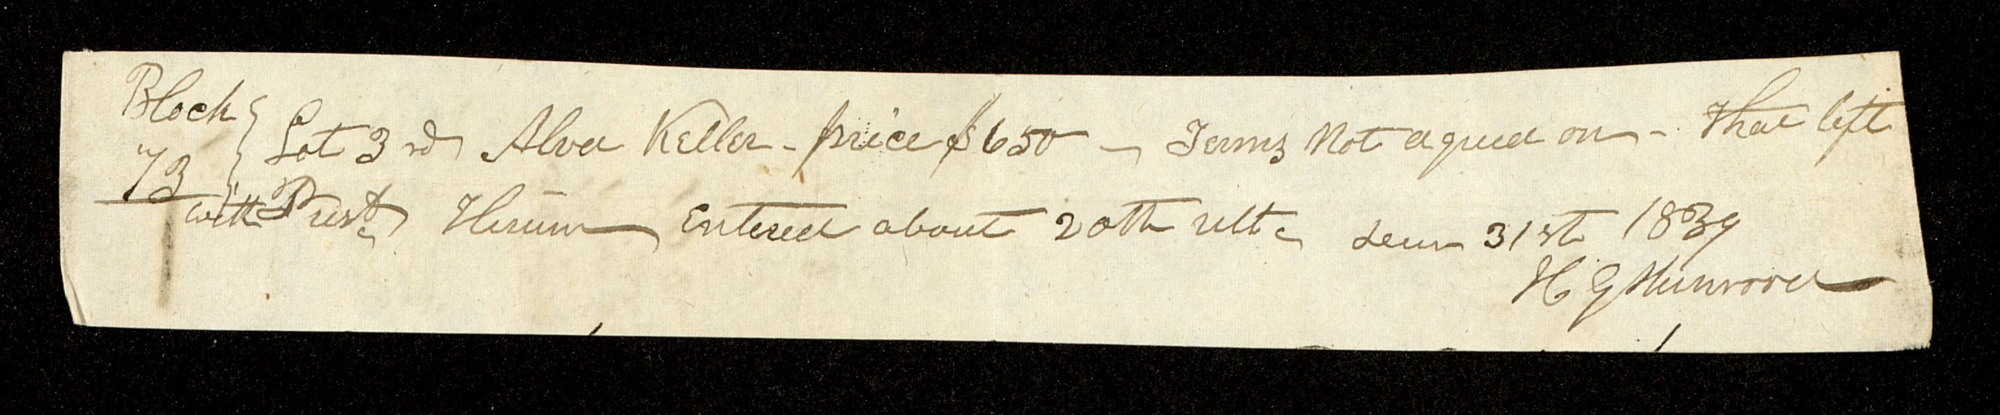 Block 73 } Lot 3rd Alva Keller - price $650 - Terms Not agreed on - That left
with Prest. Hirum Entered about 20th ult. 31st 1839
H G Sherwood